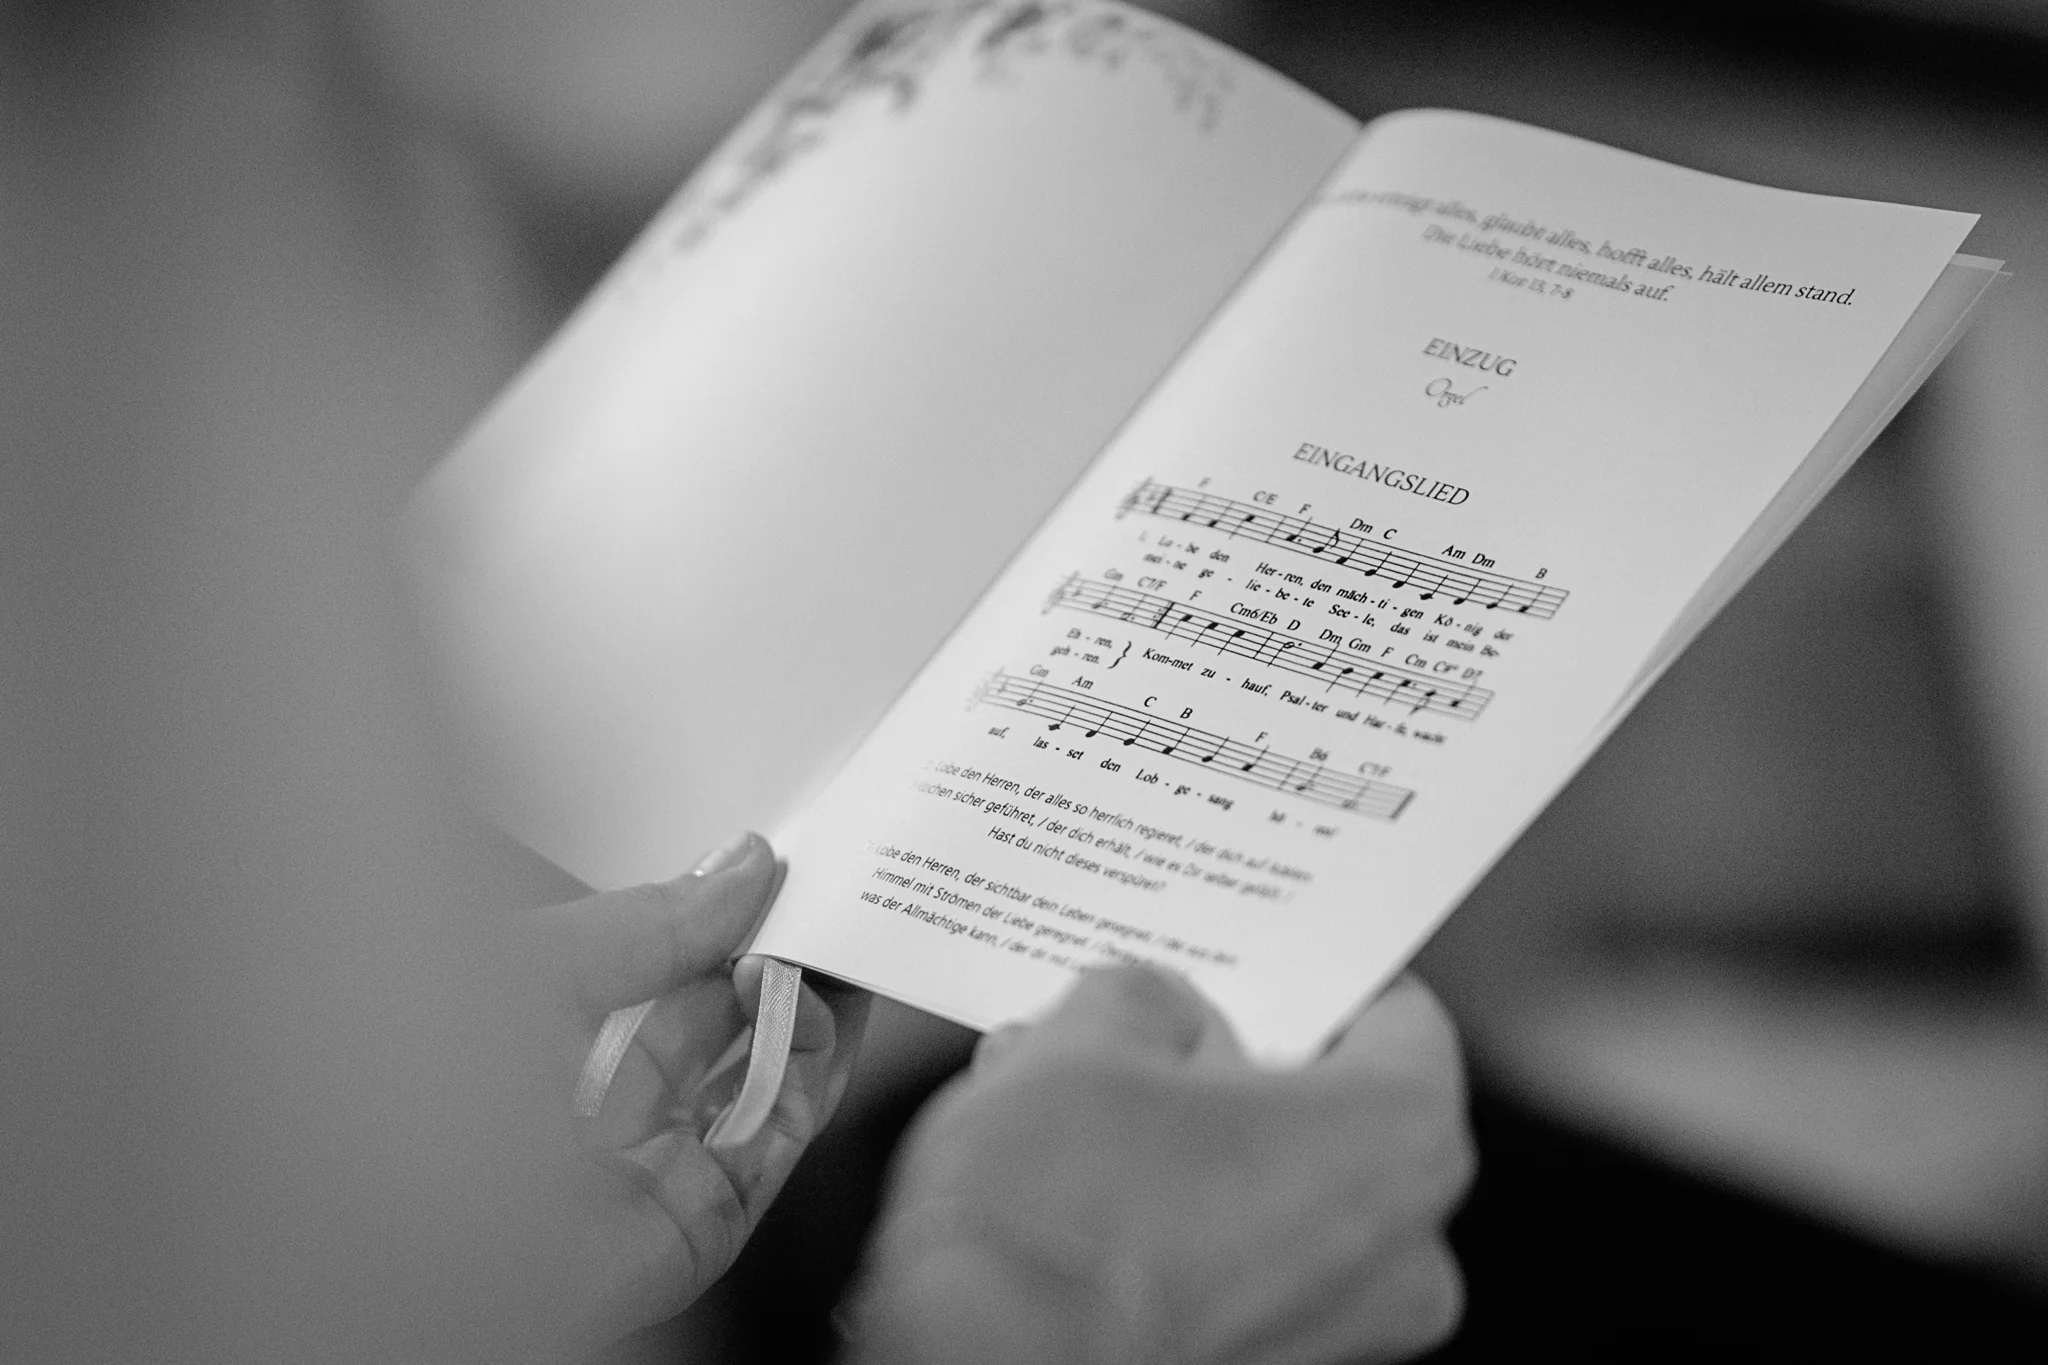 alles, glaubt alles, hofft alles, hält allem stand.
Die Liebe hört niemals auf.
1 Kor 13, 7-8
EINZUG
Orgel
EINGANGSLIED
F C/E F Dm C Am Dm B
1. Lo - be den Her - ren, den mäch - ti - gen Kö - nig der
mei - ne ge - lie - be - te See - le, das ist mein Be-
Gm C7/F F Cm6/Eb D Dm Gm F Cm D7
Eh - ren,
geh - ren. } Kom-met zu - hauf, Psal - ter und Har - fe, wacht
Gm Am C B F B6 C7/F
auf, las - set den Lob - ge - sang hö - ren!
Lobe den Herren, der alles so herrlich regieret, / der dich auf Adelers
sicher geführet, / der dich erhält, / wie es Dir selber gefällt. /
Hast du nicht dieses verspüret?
Lobe den Herren, der sichtbar dein Leben gesegnet, / der aus dem
Himmel mit Strömen der Liebe geregnet. /
was der Allmächtige kann, / der dir mit